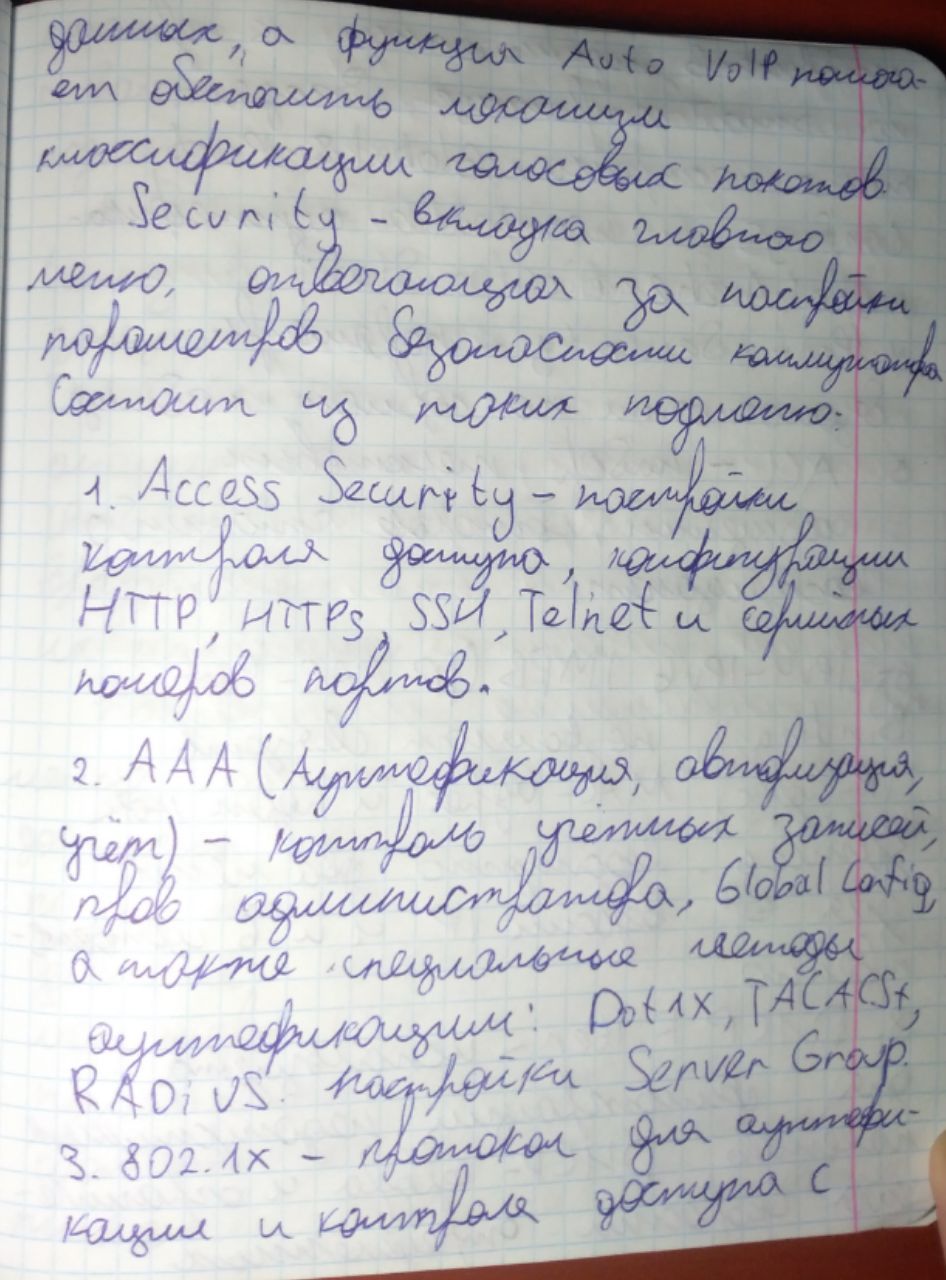 данных, а функция Auto VoIP помога-
ет обеспечить механизм
классификации голосовых пакетов.
Security – вкладка главного
меню, отвечающая за настройки
параметров безопасности коммутатора
Состоит из таких подменю:
1. Access Security – настройки
контроля доступа, конфигурации
HTTP, HTTPs, SSH, Telnet и серийных
номеров портов.
2. AAA (Аутентификация, авторизация,
учёт) – контроль учётных записей,
прав администратора, Global Config,
а также специальные методы
аутентификации: Dot1x, TACACS+,
RADiUS. настройки Server Group.
3. 802.1x – протокол для аутентифи-
кации и контроля доступа с